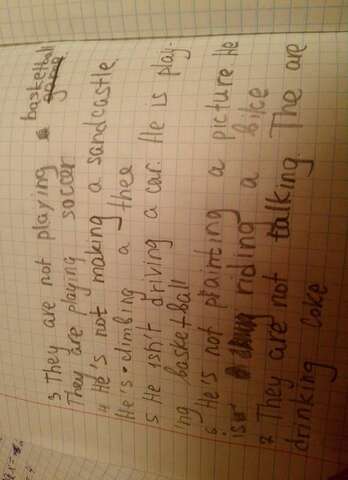 basketball
3 They are not playing game
They are playing soccer
4 He's not making a sandcastle
He's climbing a thee
5 He isn't driving a car. He is play-
ing basketball
6 He's not ptainting a picture He
is riding a bike
2 They are not talking. The are
drinking coke